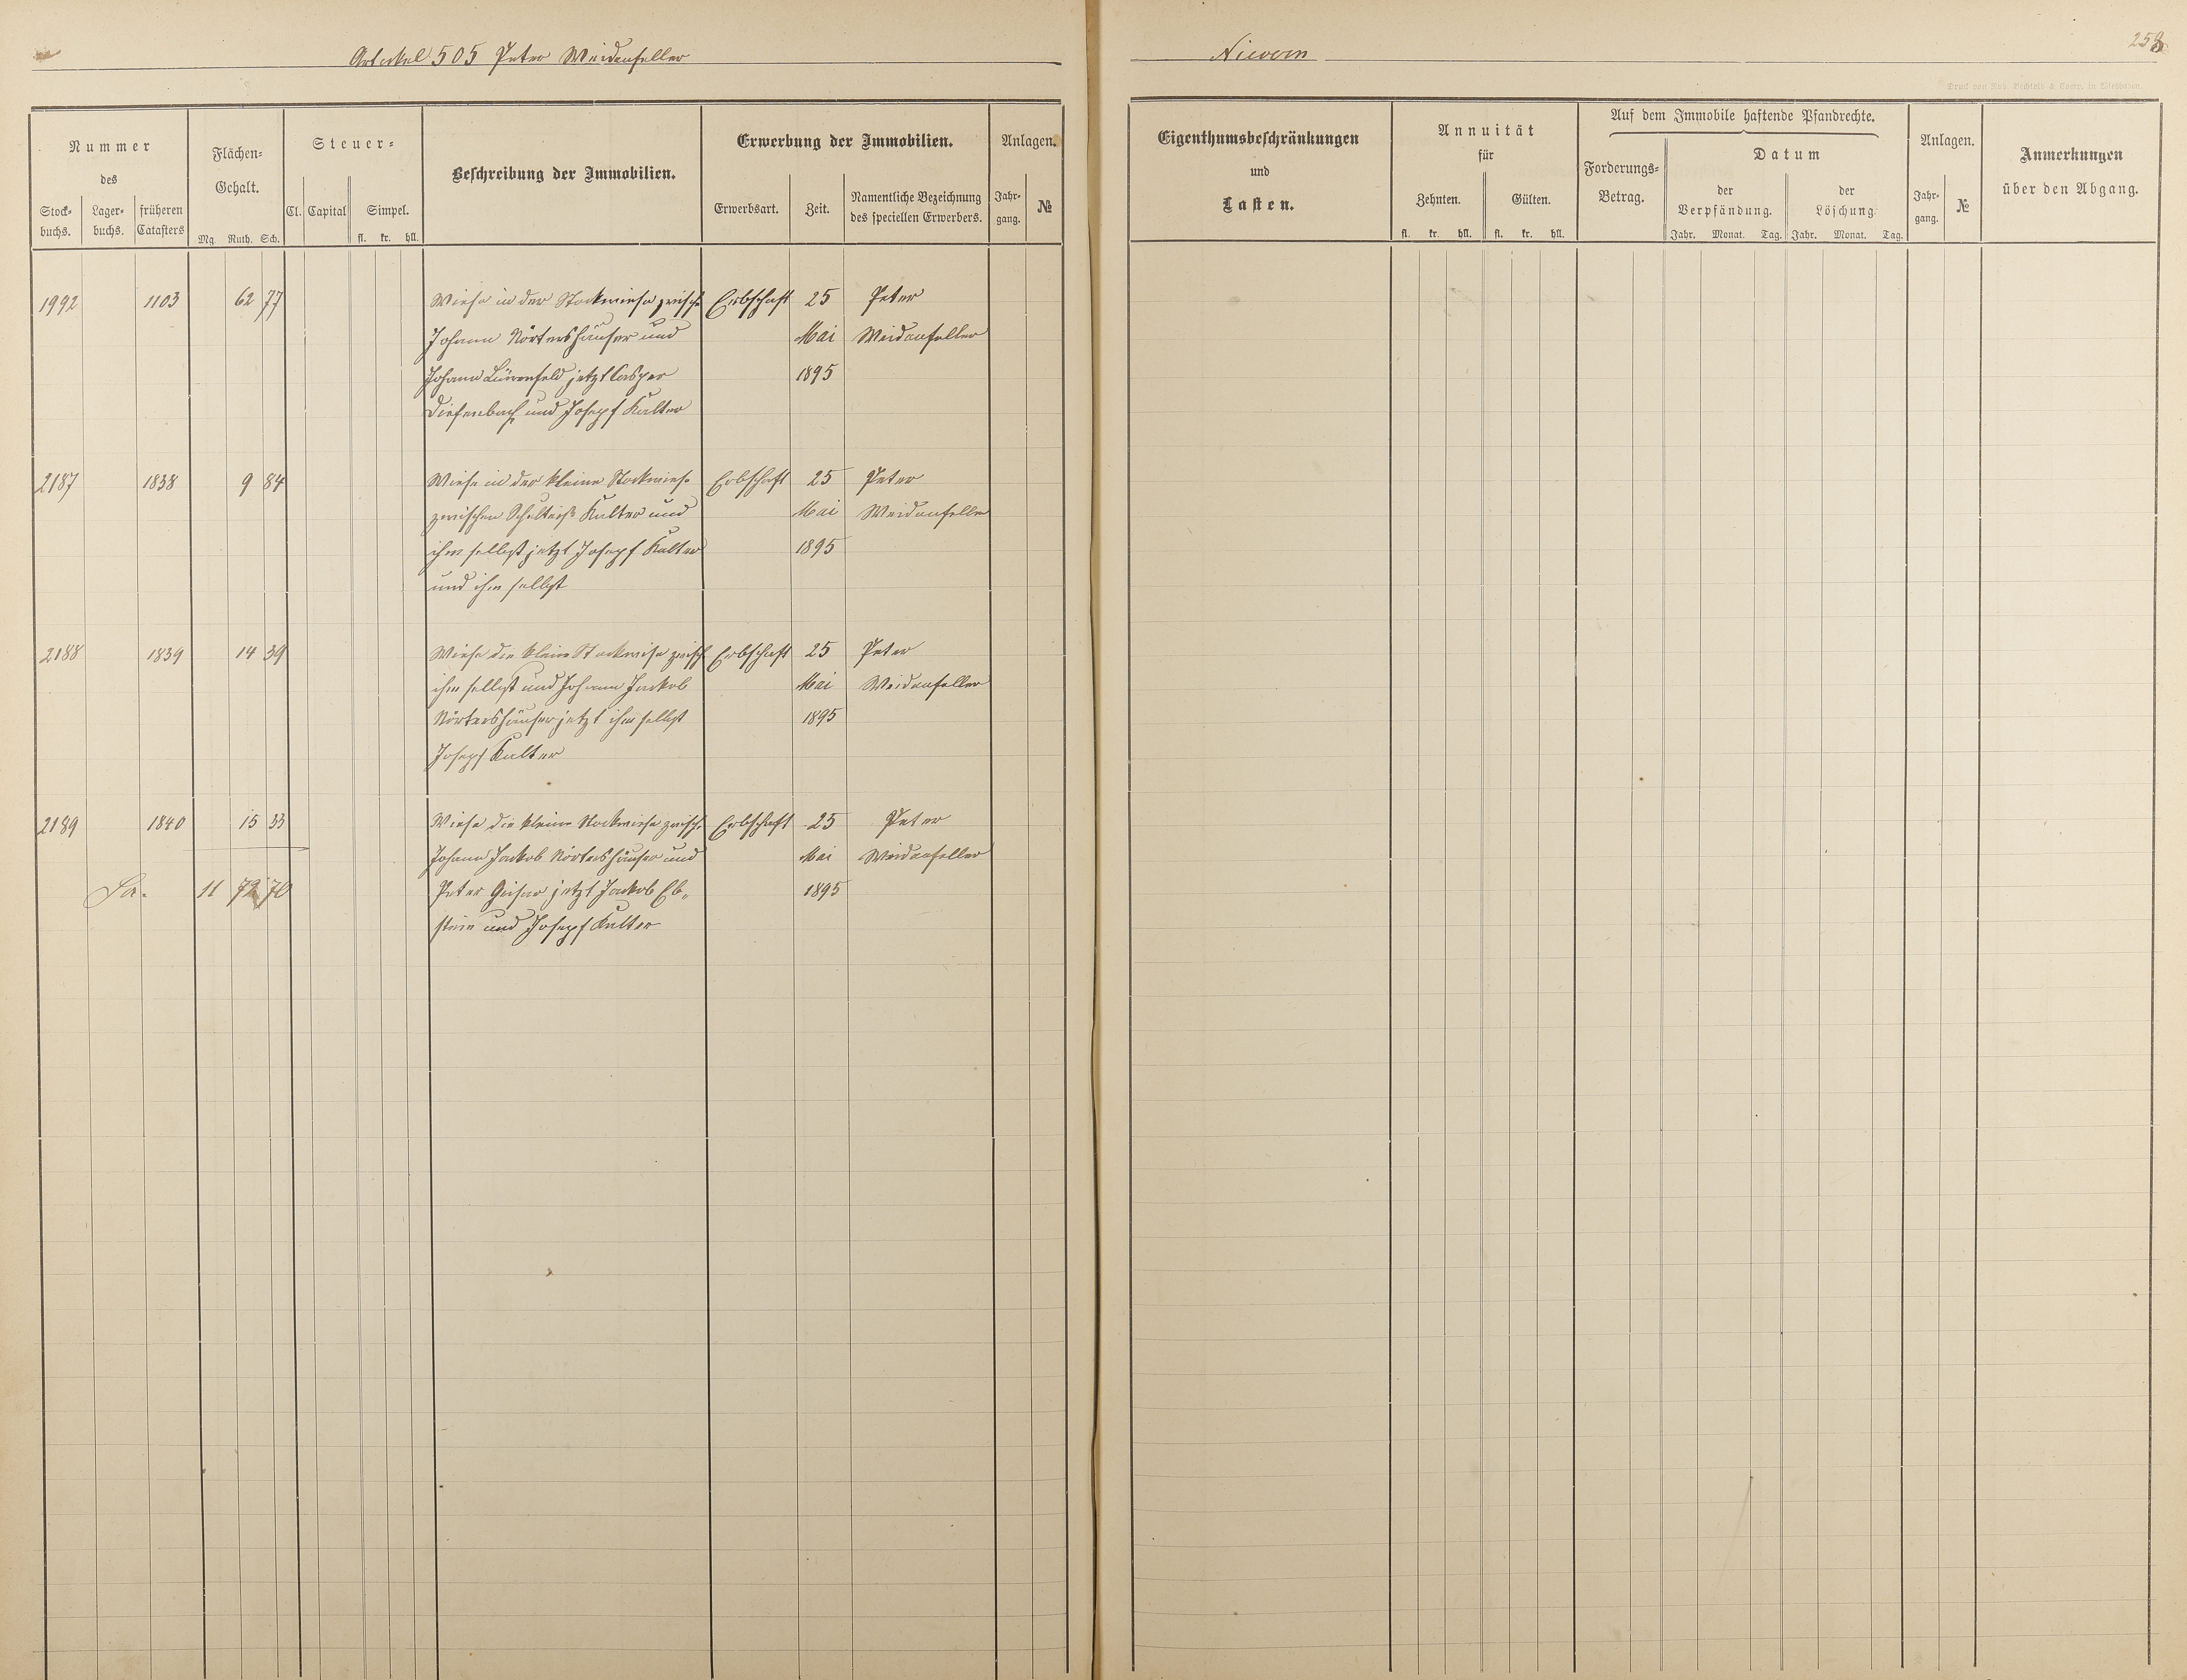 Artikel 505 Peter Weidenfeller
Nievern
258
Druck von Rud. Bechtold & Comp. in Wiesbaden.
Nummer
des
Stock-
buchs.
Lager-
buchs.
früheren
Catasters
Flächen-
Gehalt.
Mg. Ruth. Sch.
Steuer-
Cl. Capital Simpel.
fl. kr. hll.
Beschreibung der Immobilien.
Erwerbung der Immobilien.
Erwerbsart. Zeit.
Namentliche Bezeichnung
des speciellen Erwerbers.
Anlagen.
Jahr-
gang.
№
Eigenthumsbeschränkungen
und
Lasten.
Annuität
für
Zehnten. Gülten.
fl. kr. hll. fl. kr. hll.
Auf dem Immobile haftende Pfandrechte.
Forderungs-
Betrag.
Datum
der
Verpfändung.
der
Löschung
Jahr. Monat. Tag. Jahr. Monat. Tag.
Anlagen.
Jahr-
gang.
№
Anmerkungen
über den Abgang.
1992 1103 62 77 Wiese in der Stockwiese zwisch Erbschaft 25 Peter
Johann Nörtershäuser und Mai Weidenfeller
Johann jetzt Casper 1895
Diefenbach und Josepf Kalter
2187 1838 9 84 Wiese in der kleine Stockwiese Erbschaft 25 Peter
zwischen Schultheiß Kalter und Mai Weidenfeller
ihm selbst jetzt Josepf Kalter 1895
und ihm selbst
2188 1839 14 39 Wiese die kleine Stockwiese zwisch Erbschaft 25 Peter
ihm selbst und Johann Jackob Mai Weidenfeller
Nörtershäuser jetzt ihm selbst 1895
Josepf Kalter
2189 1840 15 33 Wiese die kleine Stockwiese zwisch. Erbschaft 25 Peter
Johann Jackob Nörtershäuser und Mai Weidenfeller
Sa. 11 72 70 Peter jetzt Jackob Eb„ 1895
stein und Josepf Kalter